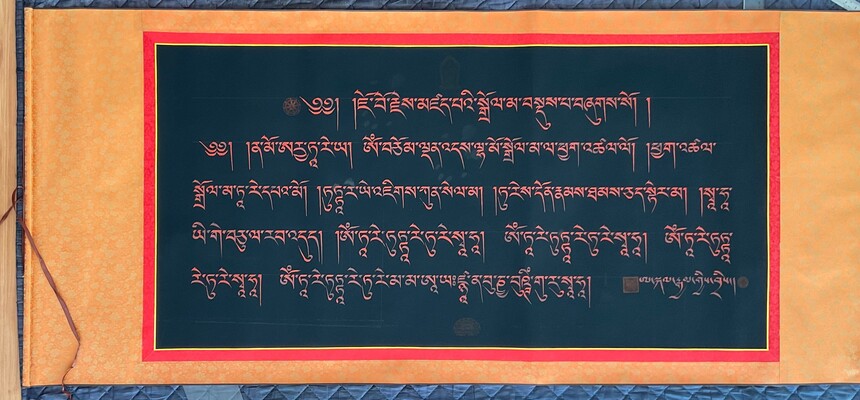 ༄༅། །ཇོ་བོ་རྗེས་མཛད་པའི་སྒྲོལ་མ་བསྡུས་པ་བཞུགས་སོ། །
༄༅། །ན་མོ་ཨཱརྱ་ཏཱ་རེ་ཡ། ཨོཾ་བཅོམ་ལྡན་འདས་ལྷ་མོ་སྒྲོལ་མ་ལ་ཕྱག་འཚལ་ལོ། །ཕྱག་འཚལ་
སྒྲོལ་མ་ཏཱ་རེ་དཔའ་མོ། །ཏུཏྟཱ་ར་ཡེ་འཇིགས་ཀུན་སེལ་མ། །ཏུ་རེས་དོན་རྣམས་ཐམས་ཅད་སྟེར་མ། །སྭཱ་ཧཱ་
ཡི་གེ་བཅུ་ལ་རབ་འདུད། །ཨོཾ་ཏཱ་རེ་ཏུཏྟཱ་རེ་ཏུ་རེ་སྭཱ་ཧཱ། ཨོཾ་ཏཱ་རེ་ཏུཏྟཱ་རེ་ཏུ་རེ་སྭཱ་ཧཱ། ཨོཾ་ཏཱ་རེ་ཏུཏྟཱ་
རེ་ཏུ་རེ་སྭཱ་ཧཱ། ཨོཾ་ཏཱ་རེ་ཏུཏྟཱ་རེ་ཏུ་རེ་མ་མ་ཨཱ་ཡུཿ་པུཎྱ་ཛྙཱ་ན་པུཥྚིཾ་ཀུ་རུ་སྭཱ་ཧཱ།